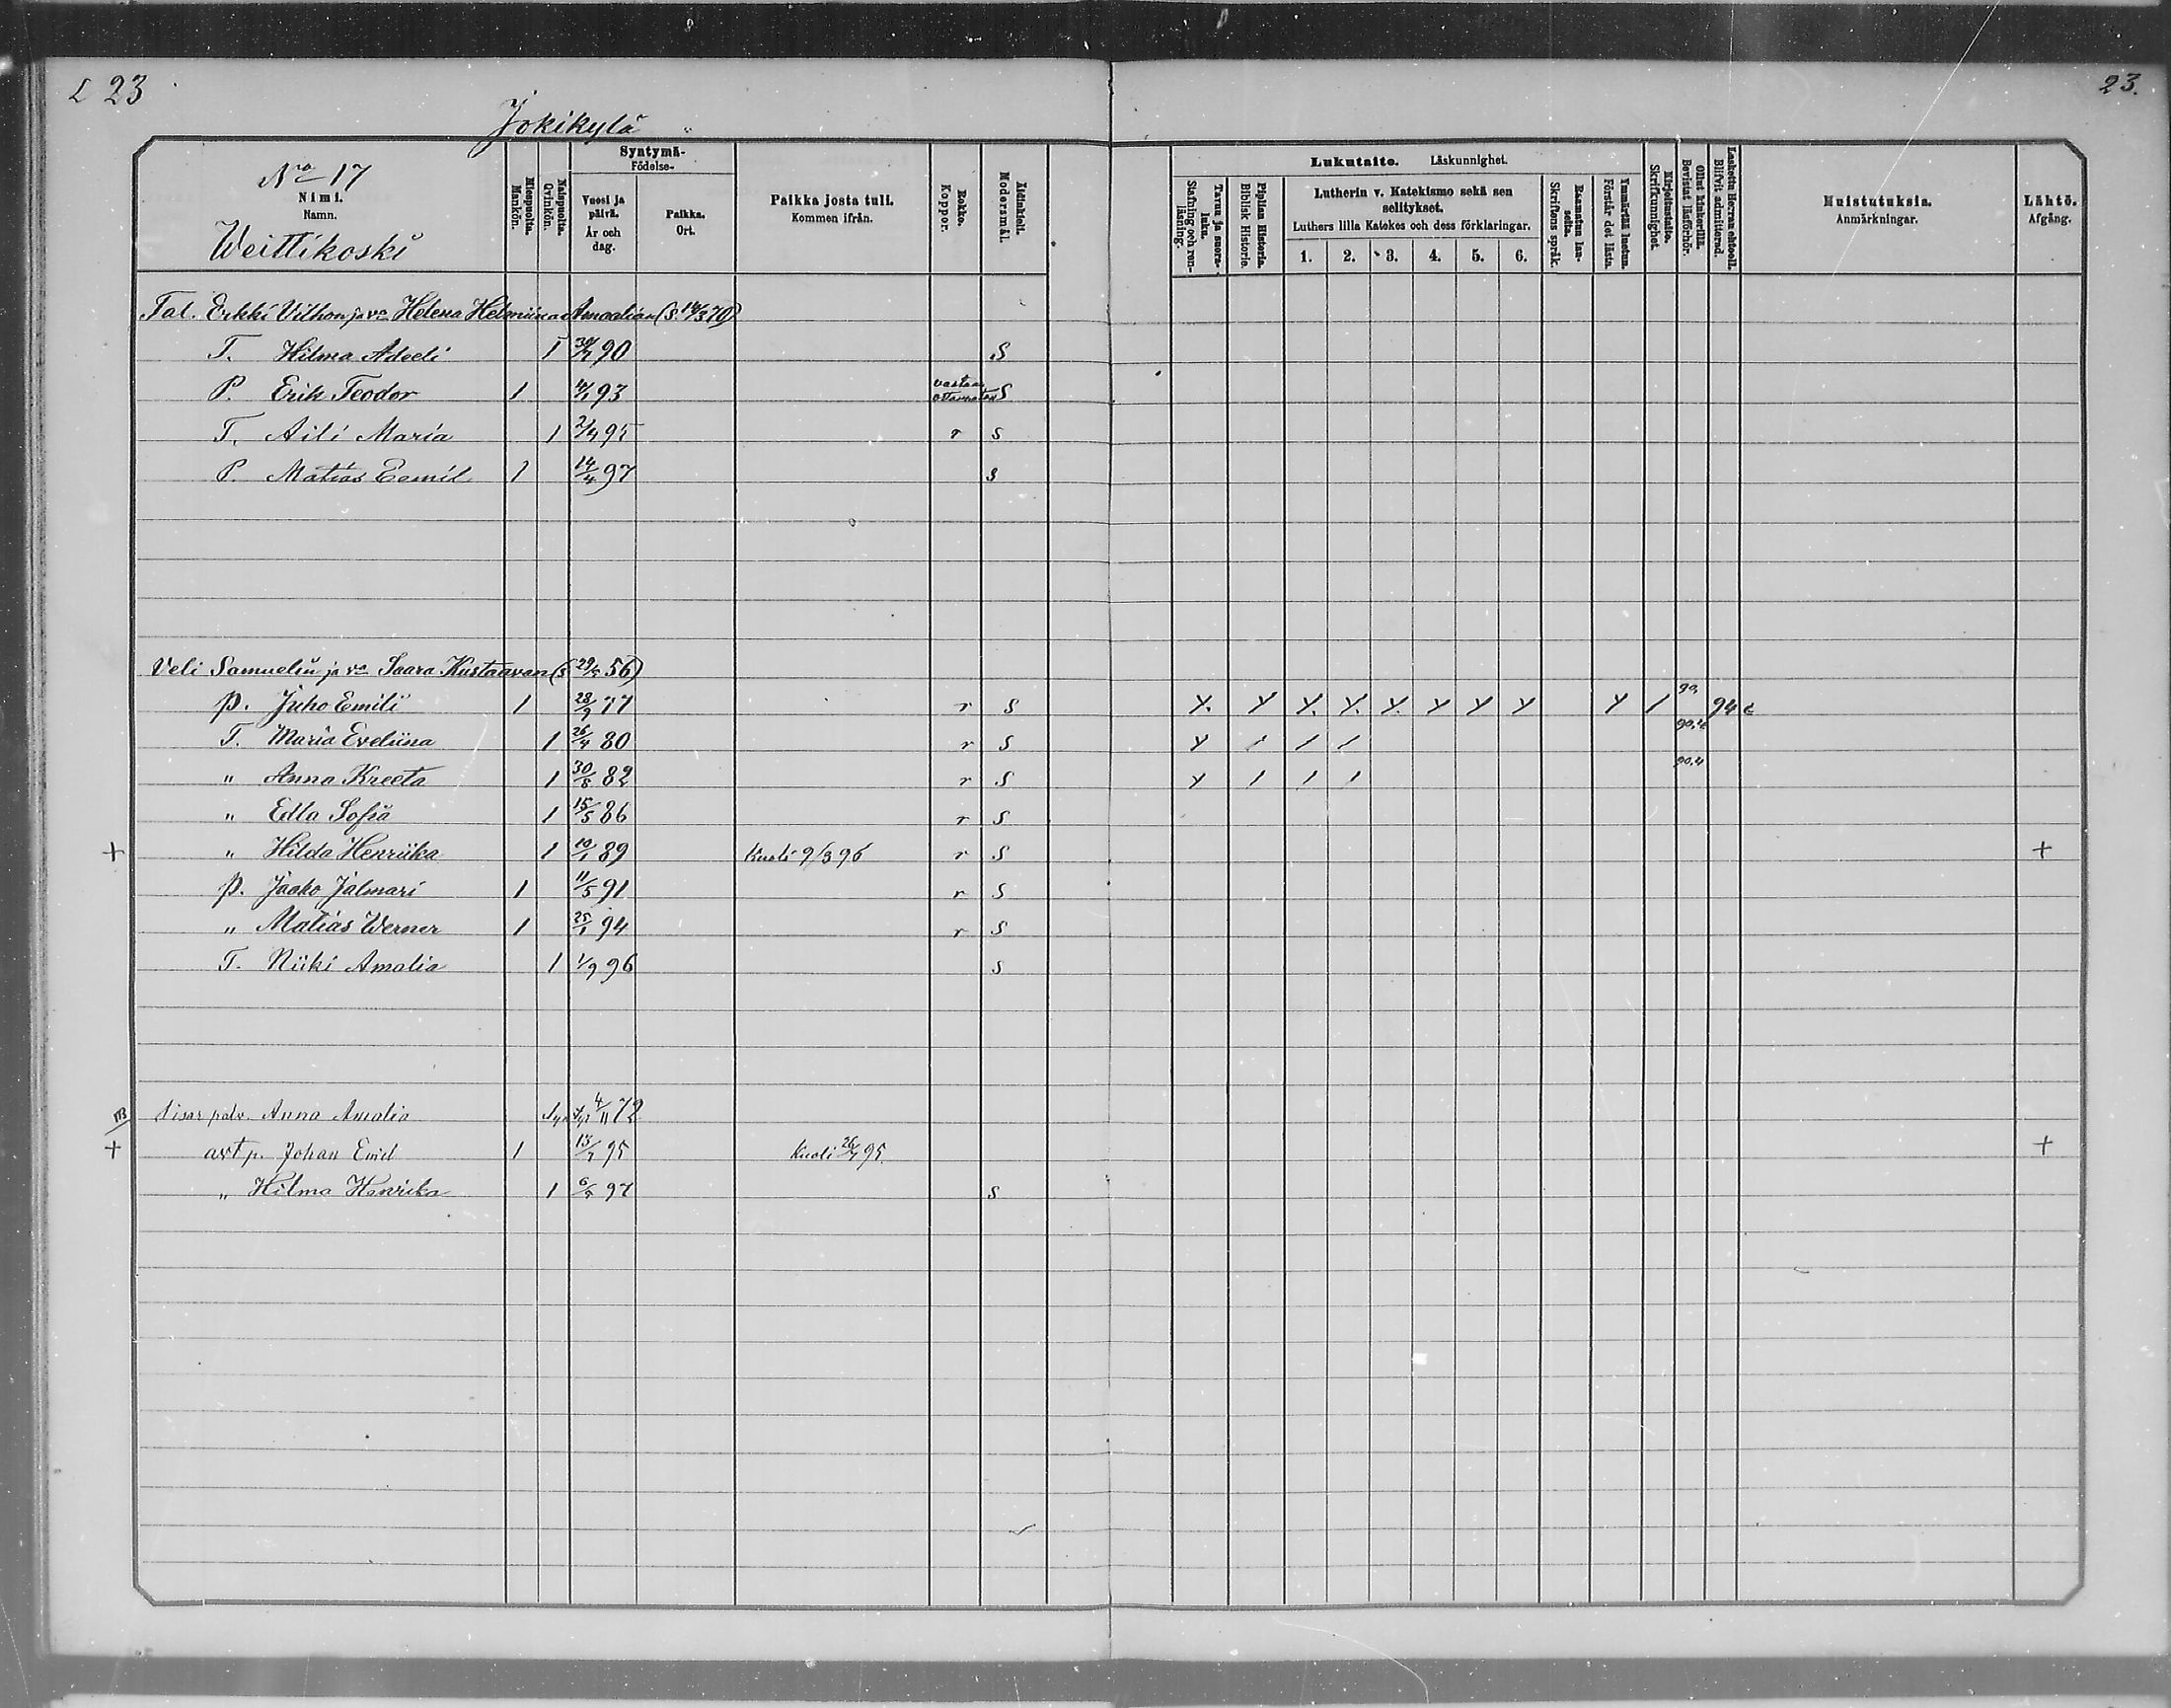 L 23
23.
Jokikylä
Nro 17
Nimi.
Namn.
Weittikoski
Miespuolta. Mankön.
Naispuolta. Qvinkön.
Syntymä-
Födelse-
Vuosi ja päivä.
År och dag.
Paikka.
Ort.
Paikka josta tuli.
Kommen ifrån.
Rokko. Koppor.
Äidinkieli. Modersmål.
Lukutaito. Läskunnighet.
Tavuu ja suora-luku. Stafning och ren-läsning.
Piplian Historia. Biblisk Historie.
Lutherin v. Katekismo sekä sen selitykset.
Luthers lilla Katekes och dess förklaringar.
1. 2. 3. 4. 5. 6.
Raamatun lau-seita. Skriftens språk.
Ymmärtää luetun. Förstår det lästa.
Kirjoitustaito. Skrifkunnighet.
Ollut kinkerillä. Bevistat läsförhör.
Laskettu Herran ehtool. Blifvit admitterad.
Muistutuksia.
Anmärkningar.
Lähtö.
Afgång.
Tal. Erkki Vilhon ja vo Helena Helmiina Amalian (S. 14/3 70)
T. Hilma Adeeli 1 30/7 90 S
P. Erik Teodor 1 4/1 93 S
T. Aili Maria 1 2/4 95 r S
P. Matias Eemil 1 14/4 97 S
Veli Samuelin ja vo Saara Kustaavan (S 29/5 56)
p. Juho Emili 1 28/9 77 r S Y. Y Y. Y. Y. Y Y Y Y / 90, 94
T. Maria Eveliina 1 26/4 80 r S Y / / / 90,
" Anna Kreeta 1 30/8 82 r S Y / / / 90,
" Edla Sofia 1 15/5 86 r S
+ " Hilda Henriika 1 10/1 89 Kuoli 9/3 96 r S +
p. Jaako Jalmari 1 11/5 91 r S
" Matias Werner 1 25/1 94 r S
T. Niiki Amalia 1 1/9 96 S
Sisar palv. Anna Amalia 4/11 72
+ avt p. Johan Emil 1 13/7 95 Kuoli 26/7 95 +
" Hilma Henrika 1 6/5 97 S